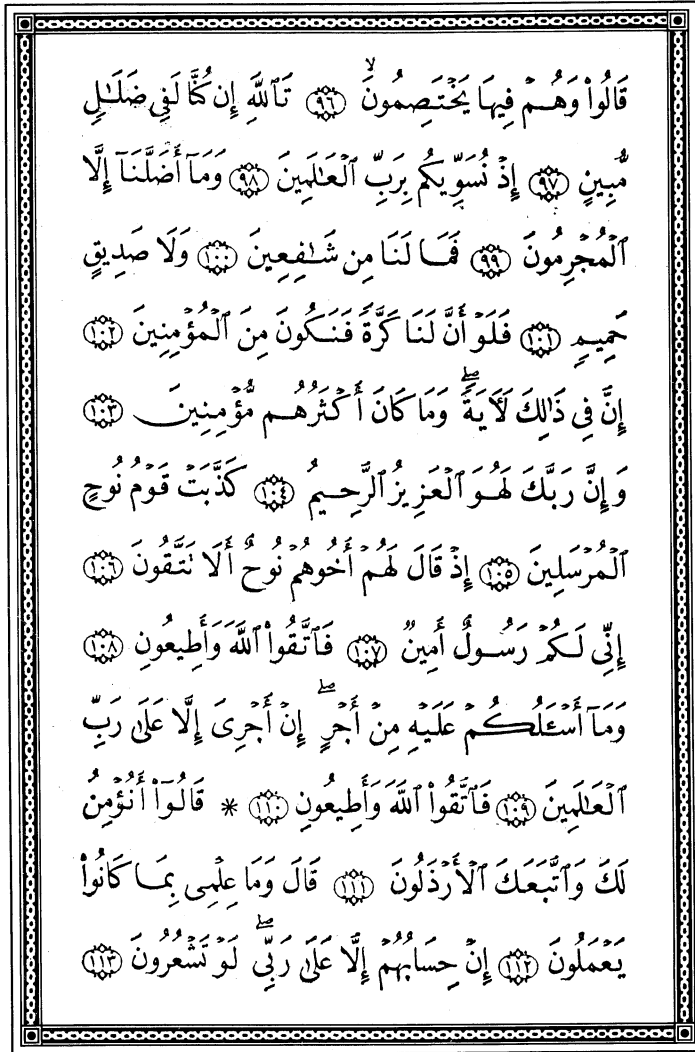 قَالُوا۟ وَهُمۡ فِيهَا يَخۡتَصِمُونَۙ ٩٦ تَٱللَّهِ إِن كُنَّا لَفِى ضَلَٰلٍ
مُّبِينٍ ٩٧ إِذۡ نُسَوِّيكُم بِرَبِّ ٱلۡعَٰلَمِينَ ٩٨ وَمَآ أَضَلَّنَآ إِلَّا
ٱلۡمُجۡرِمُونَ ٩٩ فَمَا لَنَا مِن شَٰفِعِينَ ١٠٠ وَلَا صَدِيقٍ
حَمِيمٍ ١٠١ فَلَوۡ أَنَّ لَنَا كَرَّةً فَنَكُونَ مِنَ ٱلۡمُؤۡمِنِينَ ١٠٢
إِنَّ فِى ذَٰلِكَ لَأٓيَةًۖ وَمَا كَانَ أَكۡثَرُهُم مُّؤۡمِنِينَ ١٠٣
وَإِنَّ رَبَّكَ لَهُوَ ٱلۡعَزِيزُ ٱلرَّحِيمُ ١٠٤ كَذَّبَتۡ قَوۡمُ نُوحٍ
ٱلۡمُرۡسَلِينَ ١٠٥ إِذۡ قَالَ لَهُمۡ أَخُوهُمۡ نُوحٌ أَلَا تَتَّقُونَ ١٠٦
إِنِّى لَكُمۡ رَسُولٌ أَمِينٌ ١٠٧ فَٱتَّقُوا۟ ٱللَّهَ وَأَطِيعُونِ ١٠٨
وَمَآ أَسۡـَٔلُكُمۡ عَلَيۡهِ مِنۡ أَجۡرٍۖ إِنۡ أَجۡرِىَ إِلَّا عَلَىٰ رَبِّ
ٱلۡعَٰلَمِينَ ١٠٩ فَٱتَّقُوا۟ ٱللَّهَ وَأَطِيعُونِ ١١٠ * قَالُوٓا۟ أَنُؤۡمِنُ
لَكَ وَٱتَّبَعَكَ ٱلۡأَرۡذَلُونَ ١١١ قَالَ وَمَا عِلۡمِى بِمَا كَانُوا۟
يَعۡمَلُونَ ١١٢ إِنۡ حِسَابُهُمۡ إِلَّا عَلَىٰ رَبِّىۖ لَوۡ تَشۡعُرُونَ ١١٣